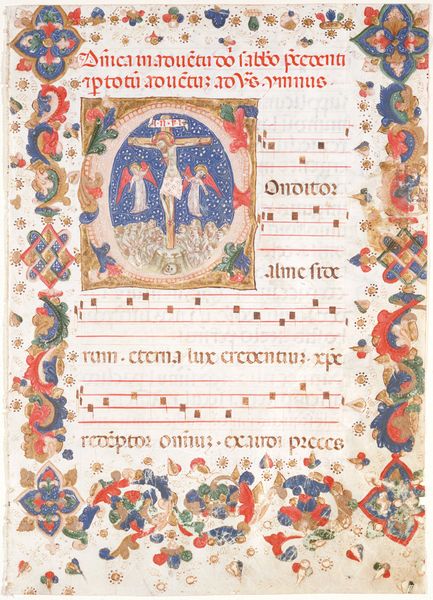 Dnica in aduetu dni sabbo pcedenti
totu aduetuz ad vs. ymnus.
I·N·R·I
C onditor
alme side
rum. eterna lux credentiuz. xpe
redeptor omniuz. exaudi preces